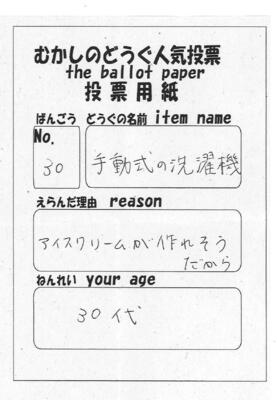 むかしのどうぐ人気投票
the ballot paper
投票用紙
ばんごう どうぐの名前 item name
No.
30 手動式の洗濯機
えらんだ理由 reason
アイスクリームが作れそう
だから
ねんれい your age
30代